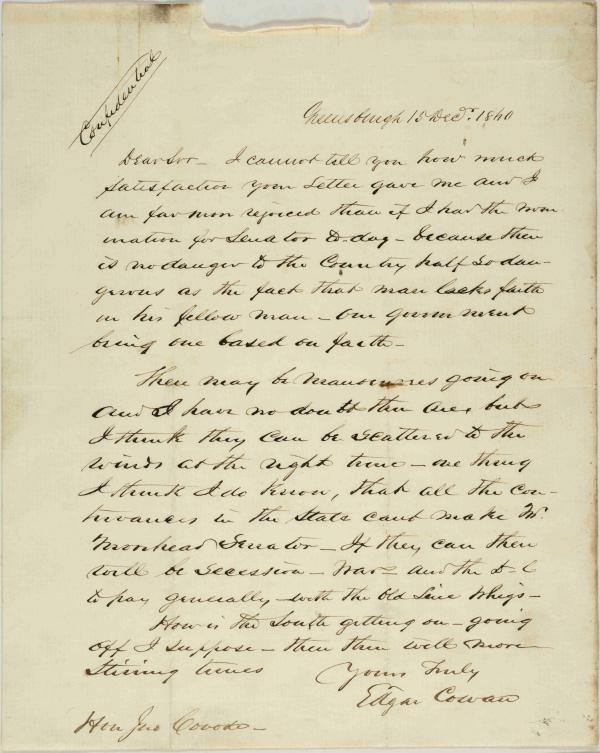 Confidential
Greensburgh 15 Decr. 1860
Dear Sir – I cannot tell you how much
satisfaction your Letter gave me and I
am far more rejoiced than if I had the nom
ination for Senator to-day – because there
is no danger to the Country half so dan-
gerous as the fact that man lacks faith
in his fellow man – our government
being one based on faith –
There may be manoeuvres going on
and I have no doubt there are, but
I think they can be scattered to the
winds at the right time – one thing
I think I do know, that all the con-
trivances in the State cant make Mr.
Moorhead Senator – If they can there
will be secession – War – and the D–l
to pay generally – with the Old Line Whigs –
How is the South getting on – going
off I suppose – then there will more
stirring times
Yours Truly
Edgar Cowan
Hon Jno Covode –